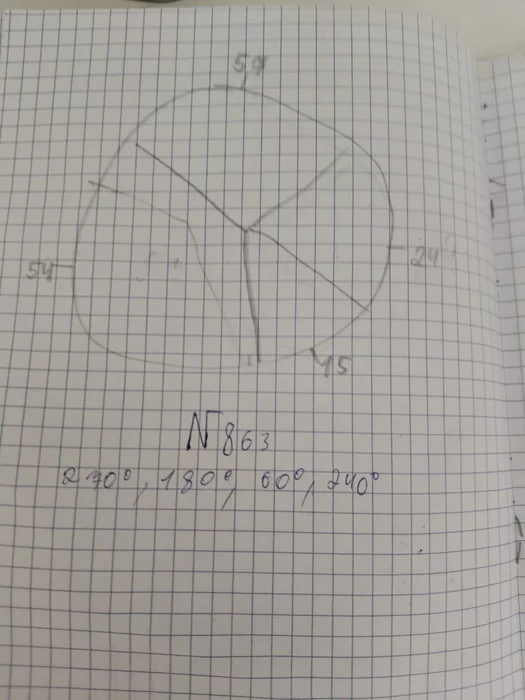 54
24
45
N863
270°, 180°, 60°, 240°